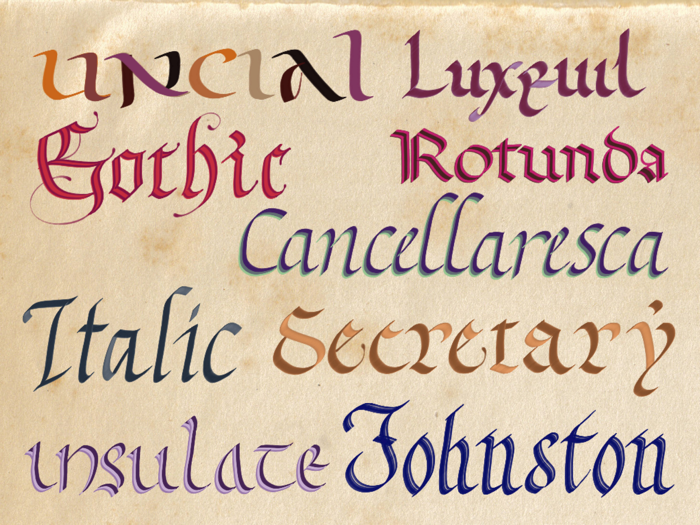 uncial Luxeuil
Gothic Rotunda
Cancellaresca
Italic Secretary
insulate Johnston